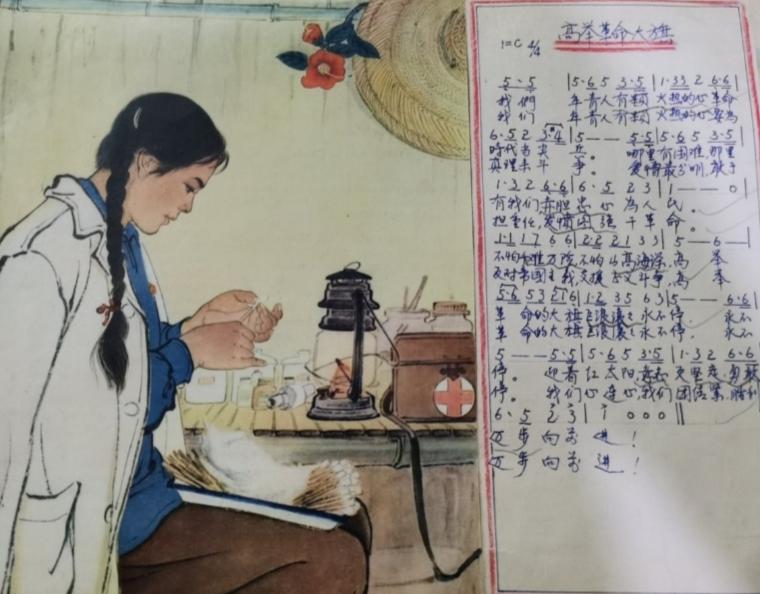 高举革命大旗
1=C 4/4
5· 5 | 5·6 5 3·5 | 1·3 3 2 6·6 |
我们 年青人有 火热的心 革命
我们 年青人有 火热的心 要为
6·5 2 3·4 | 5 — — 5·5 | 5·6 5 3·5 |
時代当尖 兵。 哪里有困难，那里
真理去斗 争。 爱憎最分明，敢于
1·3 2 6·6 | 6·5 2 3 | 1 — — 0 |
有我们 赤胆忠心為人民。
担重任，发愤图强干革命。
1·1 1 7 6 6 | 2·2 2 1 3 3 | 5 — 6 — |
不怕 万险，不怕山高海深，高 举
反对帝国主 我，支援 斗争，高 举
5·6 5 3 2 1 6 | 1·2 3 5 6 3 | 5 — — 6·6 |
革命的大旗 滚滚 永不停， 永不
革命的大旗 滚滚 永不停， 永不
5 — — 5·5 | 5·6 5 3·5 | 1·3 2 6·6 |
停。 迎着红太阳， 更坚定，勇敢
停。 我们心连心，我们团结紧，勝利
6·5 2 3 | 1 0 0 0 ‖
迈步向前进！
迈步向前进！